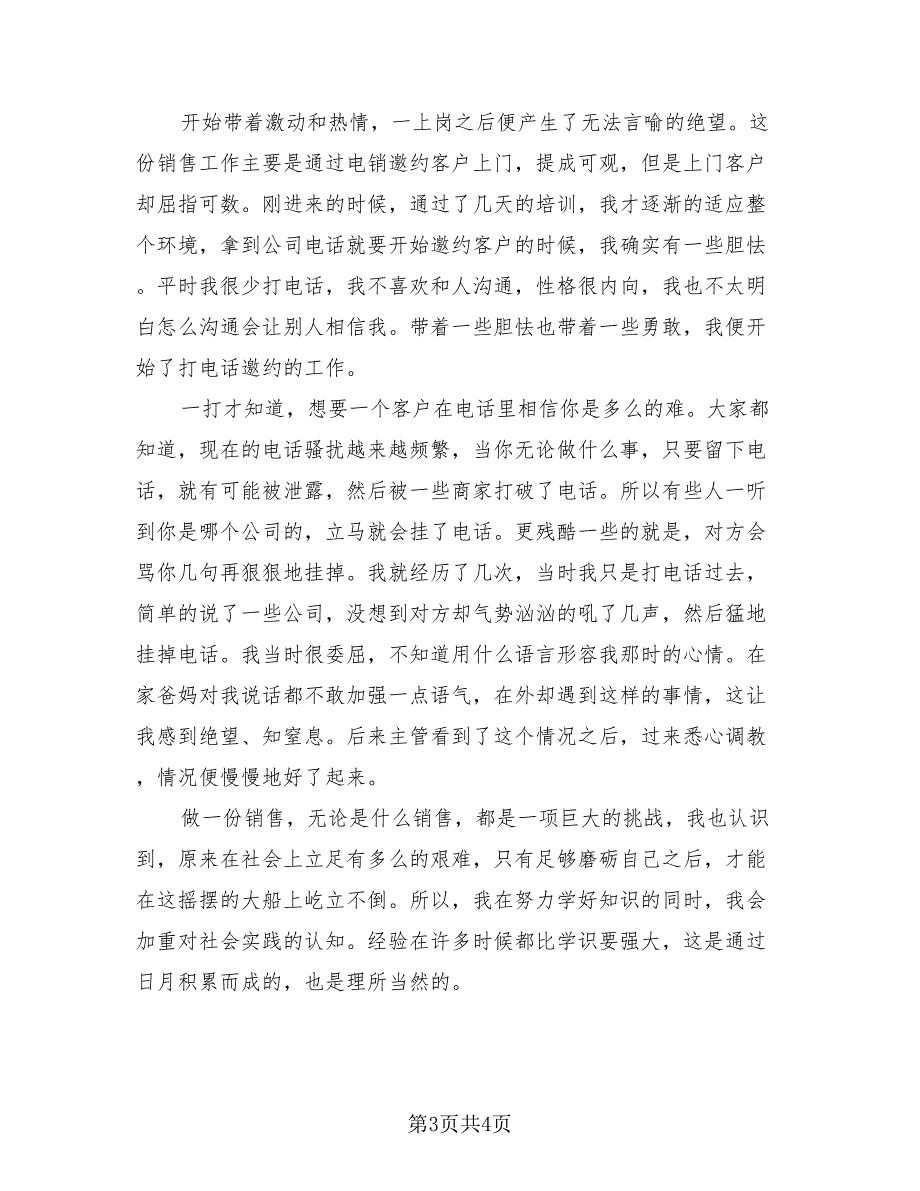 开始带着激动和热情，一上岗之后便产生了无法言喻的绝望。这
份销售工作主要是通过电销邀约客户上门，提成可观，但是上门客户
却屈指可数。刚进来的时候，通过了几天的培训，我才逐渐的适应整
个环境，拿到公司电话就要开始邀约客户的时候，我确实有一些胆怯
。平时我很少打电话，我不喜欢和人沟通，性格很内向，我也不太明
白怎么沟通会让别人相信我。带着一些胆怯也带着一些勇敢，我便开
始了打电话邀约的工作。
一打才知道，想要一个客户在电话里相信你是多么的难。大家都
知道，现在的电话骚扰越来越频繁，当你无论做什么事，只要留下电
话，就有可能被泄露，然后被一些商家打破了电话。所以有些人一听
到你是哪个公司的，立马就会挂了电话。更残酷一些的就是，对方会
骂你几句再狠狠地挂掉。我就经历了几次，当时我只是打电话过去，
简单的说了一些公司，没想到对方却气势汹汹的吼了几声，然后猛地
挂掉电话。我当时很委屈，不知道用什么语言形容我那时的心情。在
家爸妈对我说话都不敢加强一点语气，在外却遇到这样的事情，这让
我感到绝望、知窒息。后来主管看到了这个情况之后，过来悉心调教
，情况便慢慢地好了起来。
做一份销售，无论是什么销售，都是一项巨大的挑战，我也认识
到，原来在社会上立足有多么的艰难，只有足够磨砺自己之后，才能
在这摇摆的大船上屹立不倒。所以，我在努力学好知识的同时，我会
加重对社会实践的认知。经验在许多时候都比学识要强大，这是通过
日月积累而成的，也是理所当然的。
第3页共4页